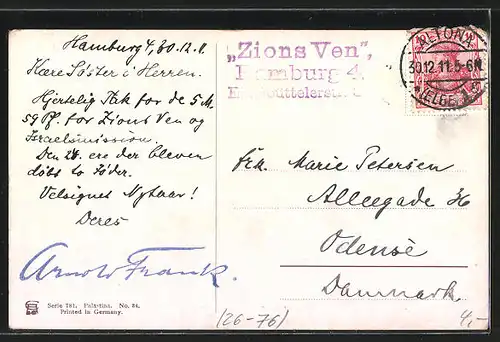 Hamburg 4, 30.12.11.
Kære Søster i Herren.
Hjertelig Tak for de 5 M.
59 Pf. for Zions Ven og
Israelsmission.
Den 24. ere der bleven
døbt to Jøder.
Velsignet Nytaar!
Deres
Arnold Frank.
Serie 781. Palæstina. No. 34.
Printed in Germany.
„Zions Ven",
Hamburg 4.
ALTONA
30.12.11.5-6N
(ELBE)
Frk. Marie Petersen
Alleegade 36
Odense
Danmark
(26-76)
4,-